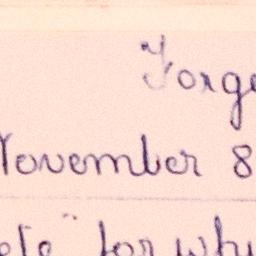 Forge
November 8
ete" for why